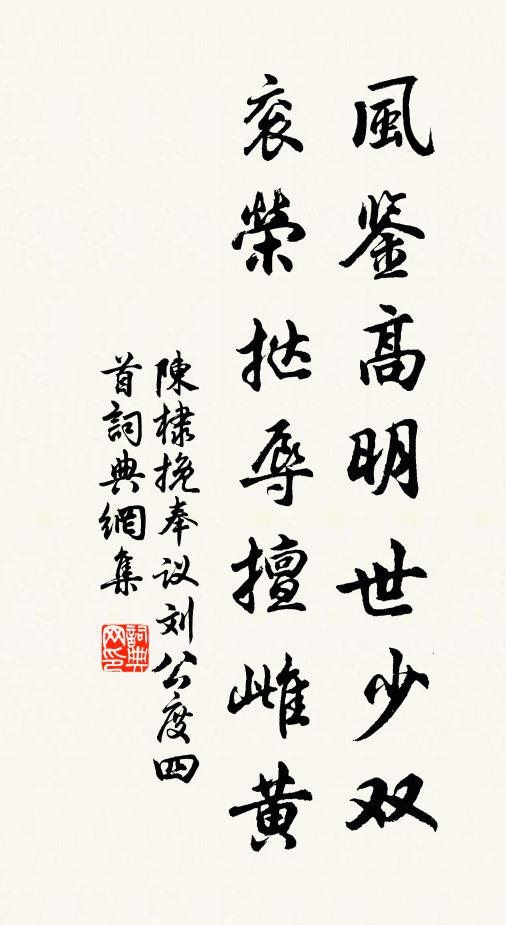 風鉴高明世少双
衮榮挞辱擅雌黄
陳棣挽奉议刘公度四
首詞典網集
詞典
网印